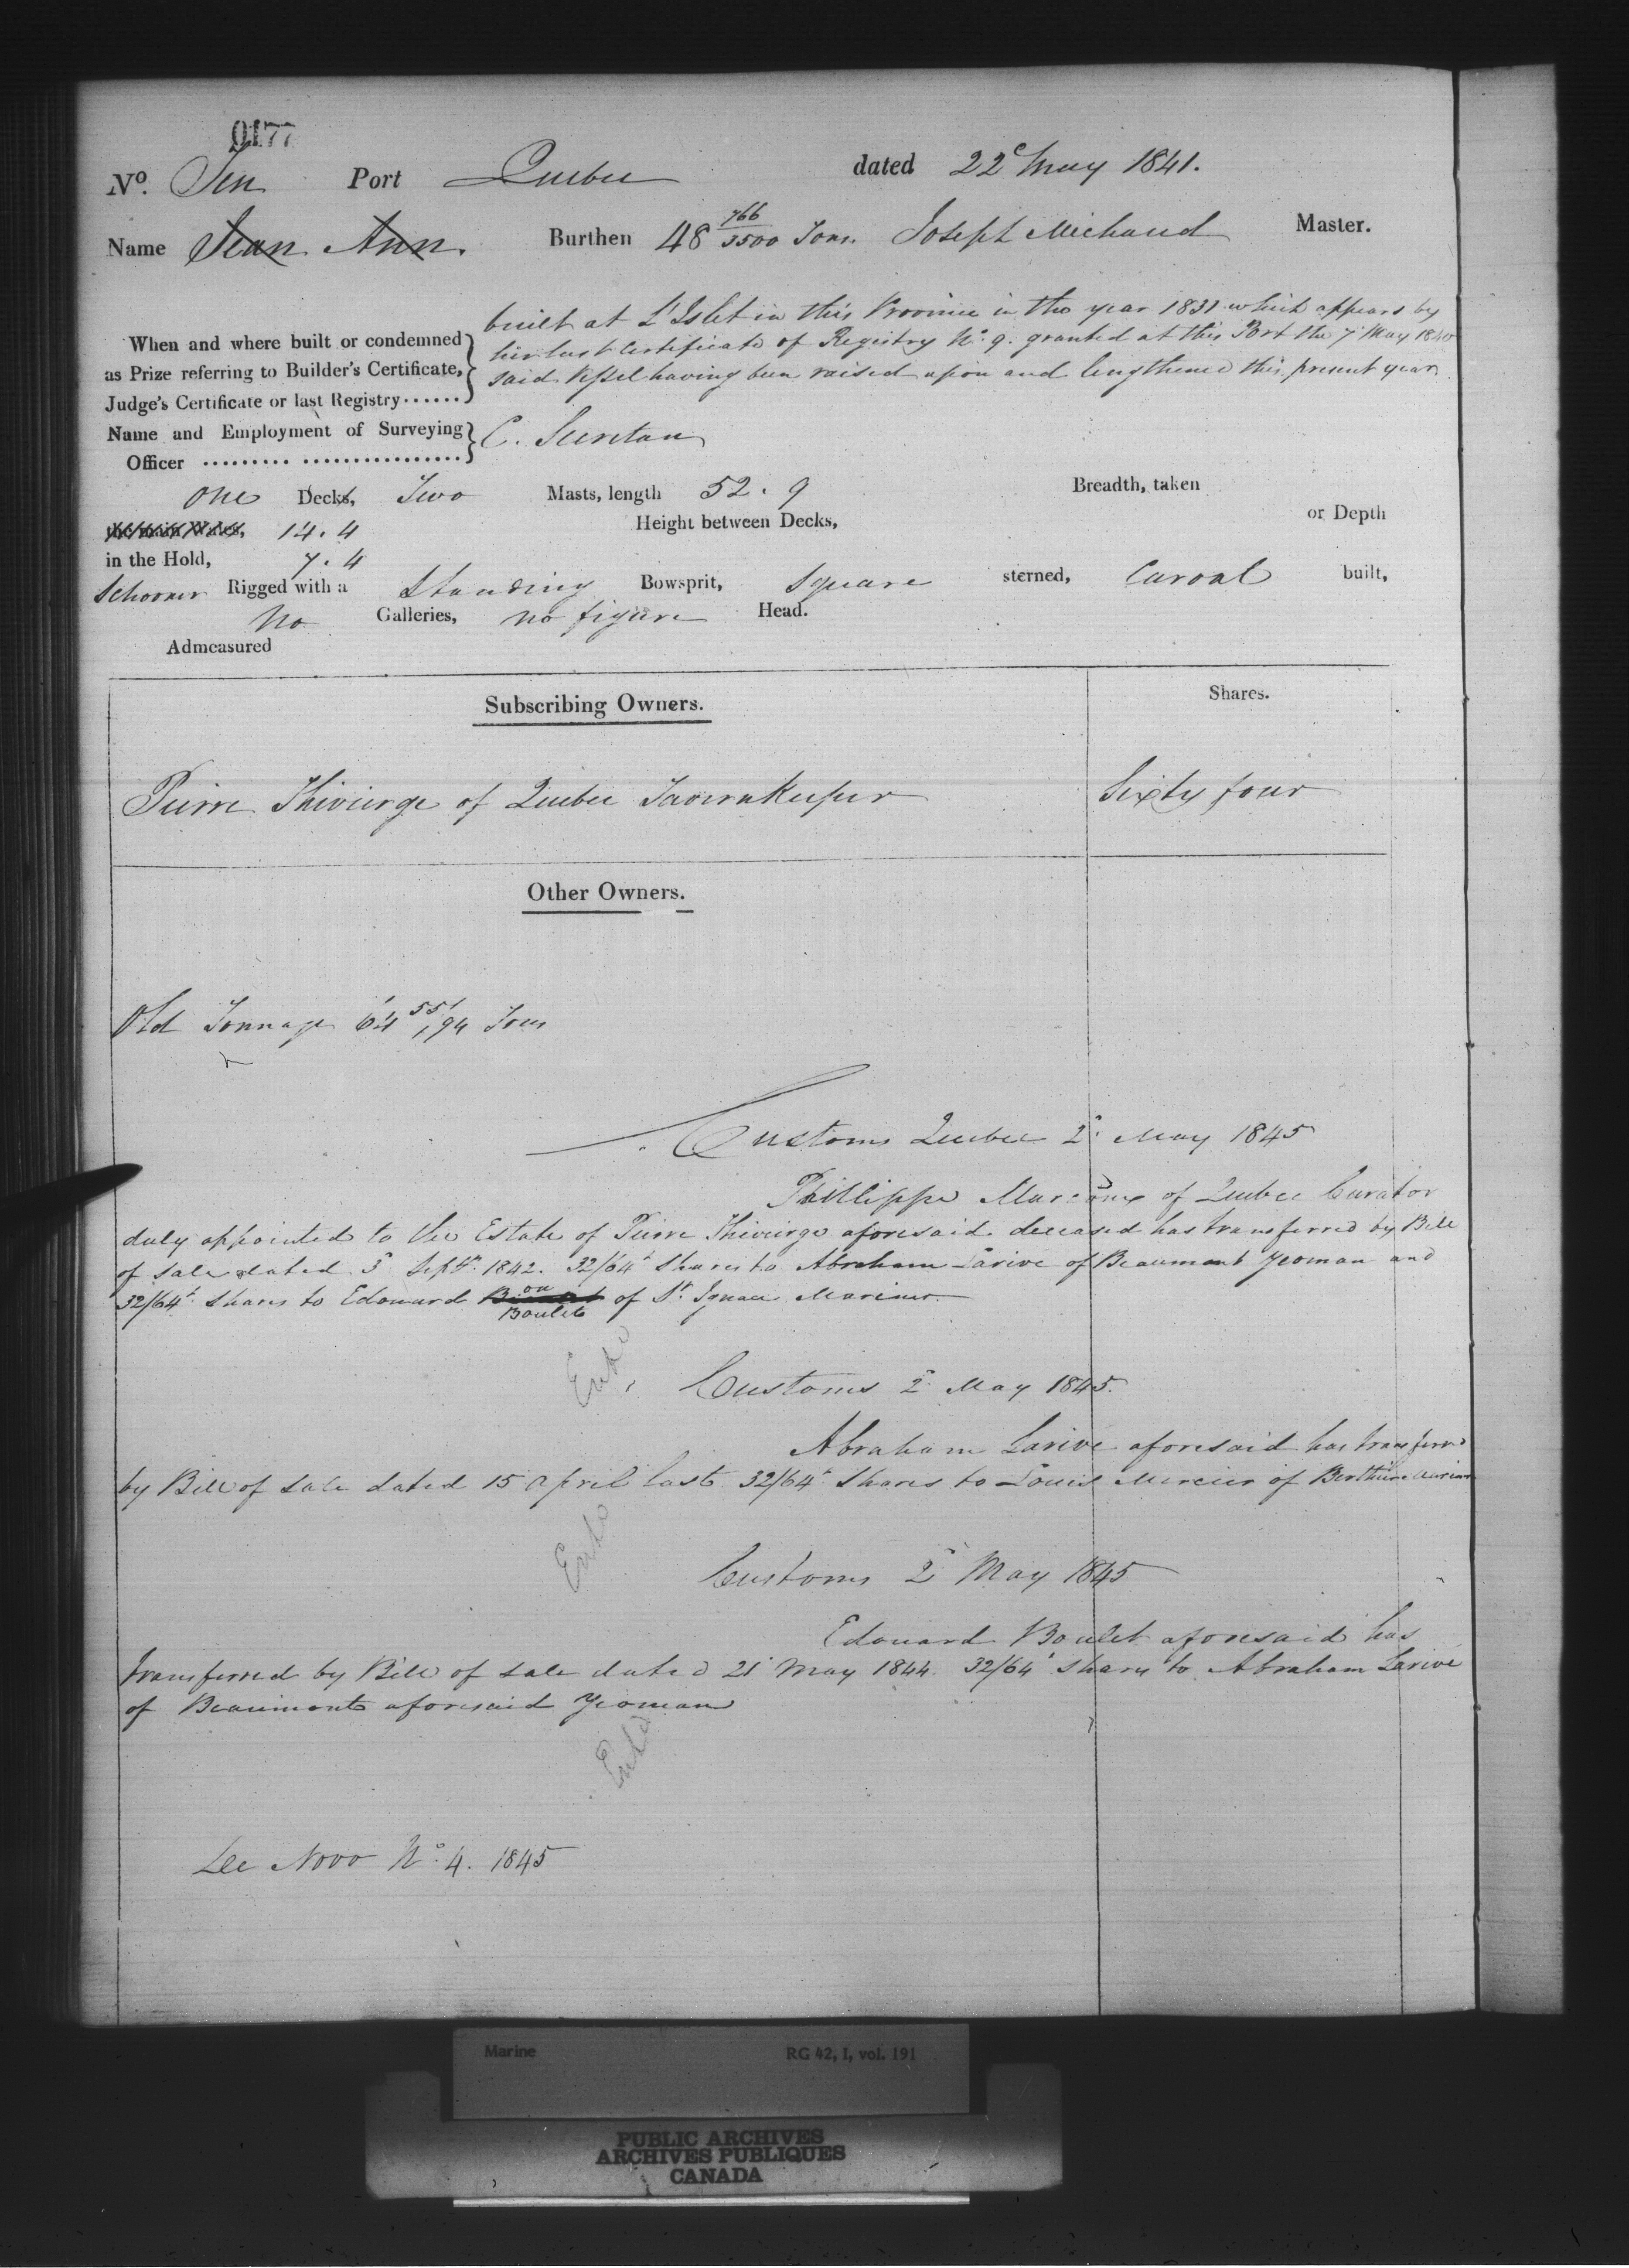 0177
No. Ten Port Quebec dated 22d May 1841.
Name Jean Ann. Burthen 48 766/3500 Tons. Joseph Michaud Master.
When and where built or condemned
as Prize referring to Builder's Certificate,
Judge's Certificate or last Registry......
built at L'Islet in this Province in the year 1831 which appears by
her last Certificate of Registry No. 9. granted at this Port the 7 May 1840
said Vessel having been raised upon and lengthened this present year
Name and Employment of Surveying
Officer ......... ................
C.
One Decks, Two Masts, length 52.9 Breadth, taken
the main Wales, 14.4 Height between Decks, or Depth
in the Hold, 7.4
Schooner Rigged with a Standing Bowsprit, Square sterned, Carval built,
No Galleries, no figure Head.
Admeasured
Subscribing Owners. Shares.
Pierre Thivierge of Quebec Tavernkeeper Sixty four
Other Owners.
Old Tonnage 64 55/94 Tons
Customs Quebec 2d May 1845
Phillippe of Quebec Curator
duly appointed to the Estate of Pierre Thivierge aforesaid deceased has transferred by Bill
of Sale dated 3d Septr. 1842. 32/64ths Shares to Abraham Larivé of Beaumont Yeoman and
32/64ths Shares to Edouard Boulet of St. Ignace Mariner
Entd
Customs 2d May 1845.
Abraham Larivé aforesaid has transferred
by Bill of Sale dated 15 April last 32/64ths Shares to Louis Mercier of Berthier Mariner
Entd
Customs 2d May 1845
Edouard Boulet aforesaid has
transferred by Bill of Sale dated 21 May 1844 32/64ths Shares to Abraham Larivé
of Beaumont aforesaid Yeoman
Entd
De Novo No. 4. 1845
Marine RG 42, I, vol. 191
PUBLIC ARCHIVES
ARCHIVES PUBLIQUES
CANADA